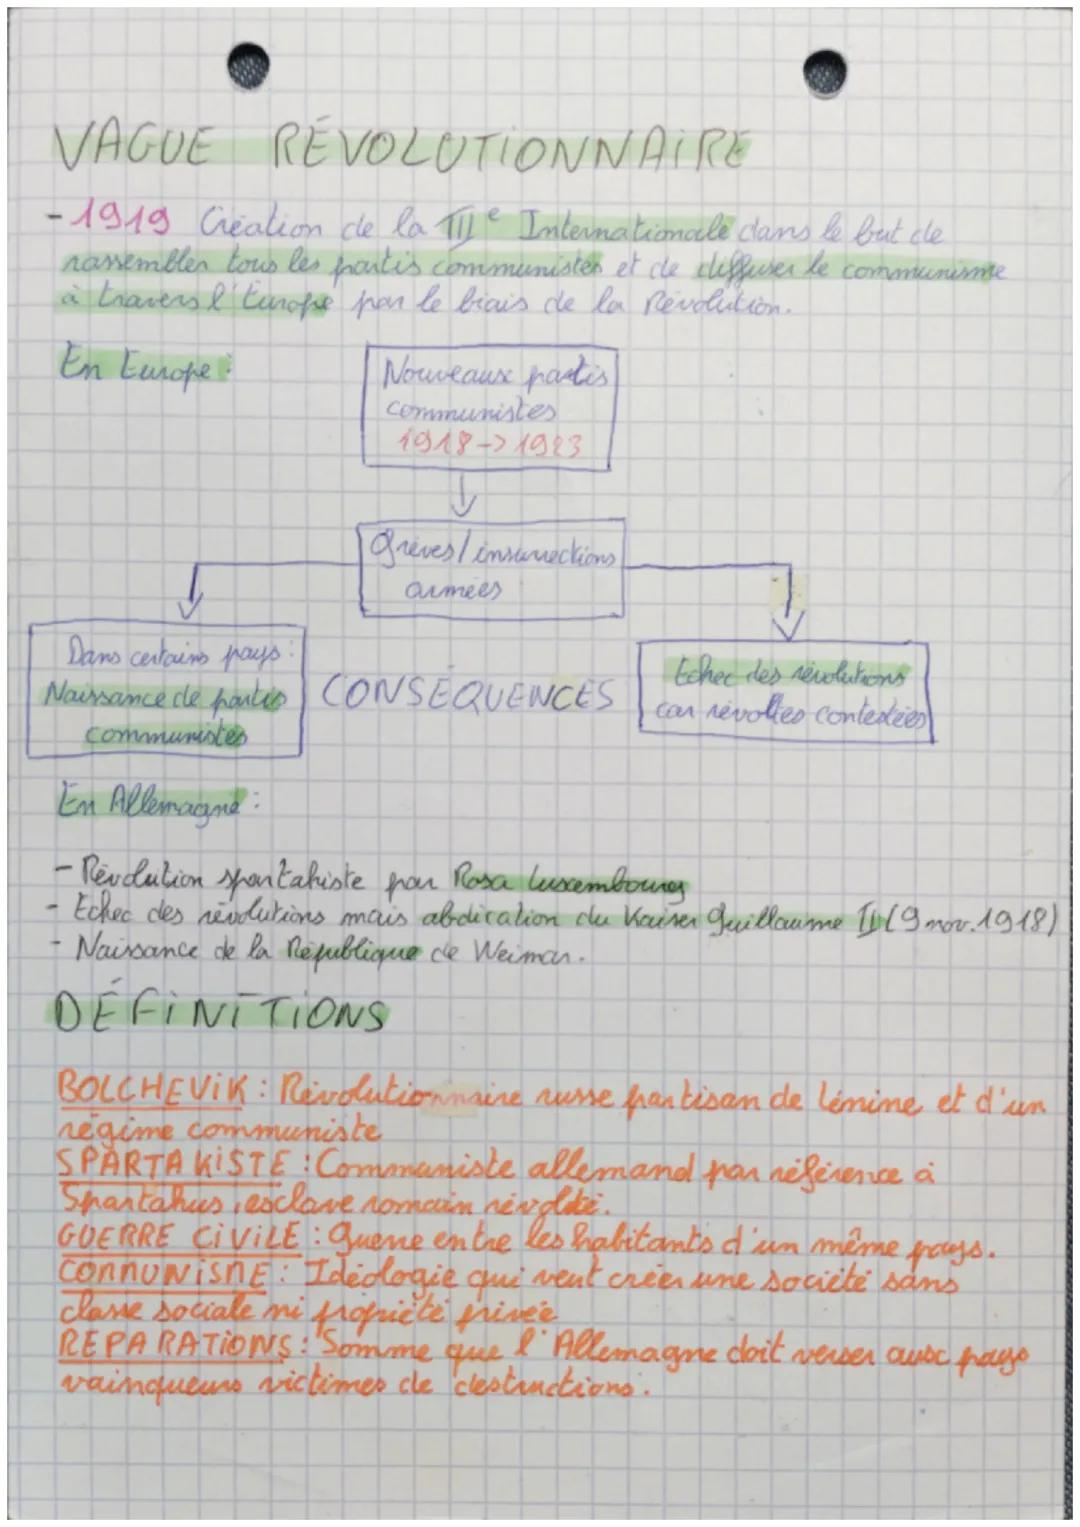 VAGUE RÉVOLUTIONNAIRE
- 1919 Création de la IIIe Internationale dans le but de
rassembler tous les partis communistes et de diffuser le communisme
à travers l'Europe par le biais de la Révolution.
En Europe :
Nouveaux partis
communistes
1918 -> 1923
Grèves / insurrections
armées
Dans certains pays :
Naissance de partis
communistes
CONSÉQUENCES
Echec des révolutions
car révoltes contestées
En Allemagne :
- Révolution spartakiste par Rosa Luxembourg
- Echec des révolutions mais abdication du Kaiser Guillaume II (9 nov. 1918)
- Naissance de la République de Weimar.
DÉFINITIONS
BOLCHEVIK : Révolutionnaire russe partisan de Lénine et d'un
régime communiste
SPARTAKISTE : Communiste allemand par référence à
Spartakus, esclave romain révolté.
GUERRE CIVILE : Guerre entre les habitants d'un même pays.
COMMUNISME : Idéologie qui veut créer une société sans
classe sociale ni propriété privée
RÉPARATIONS : Somme que l'Allemagne doit verser aux pays
vainqueurs victimes de destructions.